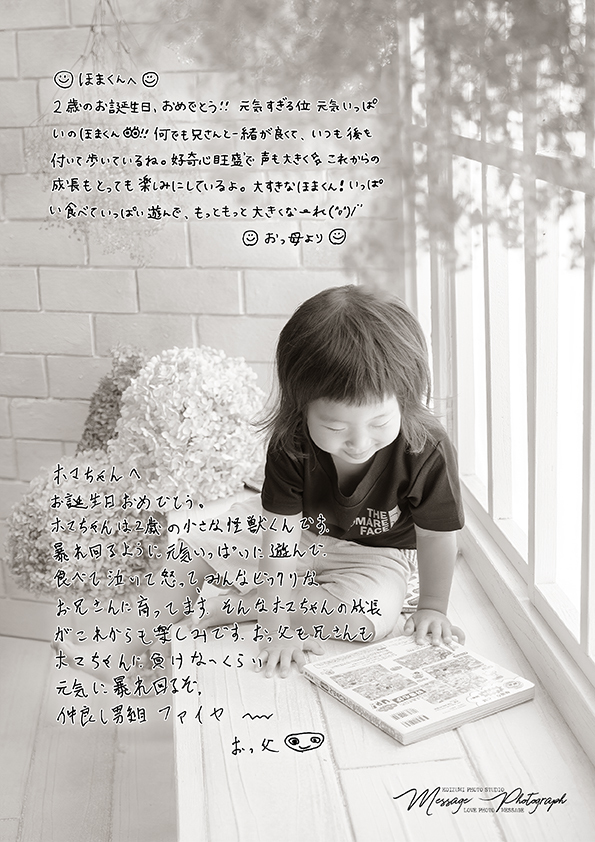 ほまくんへ
2歳のお誕生日、おめでとう!! 元気すぎる位 元気いっぱ
いのほまくん!! 何でも兄さんと一緒が良くて、いつも後を
付いて歩いているね。好奇心旺盛で 声も大きく これからの
成長もとっても楽しみにしているよ。大すきなほまくん! いっぱ
い食べていっぱい遊んで、もっともっと 大きくなーれ(^o^)/
おっ母より
ホマちゃんへ
お誕生日おめでとう。
ホマちゃんは2歳の小さな怪獣くんです。
暴れ回るように元気いっぱいに遊んで、
食べて泣いて怒って、みんなビックリな
お兄さんに育ってます。そんなホマちゃんの成長
がこれからも楽しみです。おっ父も兄さんも
ホマちゃんに負けなっくらい
元気に暴れ回るぞ。
仲良し男組 ファイヤ 〜
おっ父
THE
FACE
KOIZUMI PHOTO STUDIO
Message Photograph
LOVE PHOTO MESSAGE